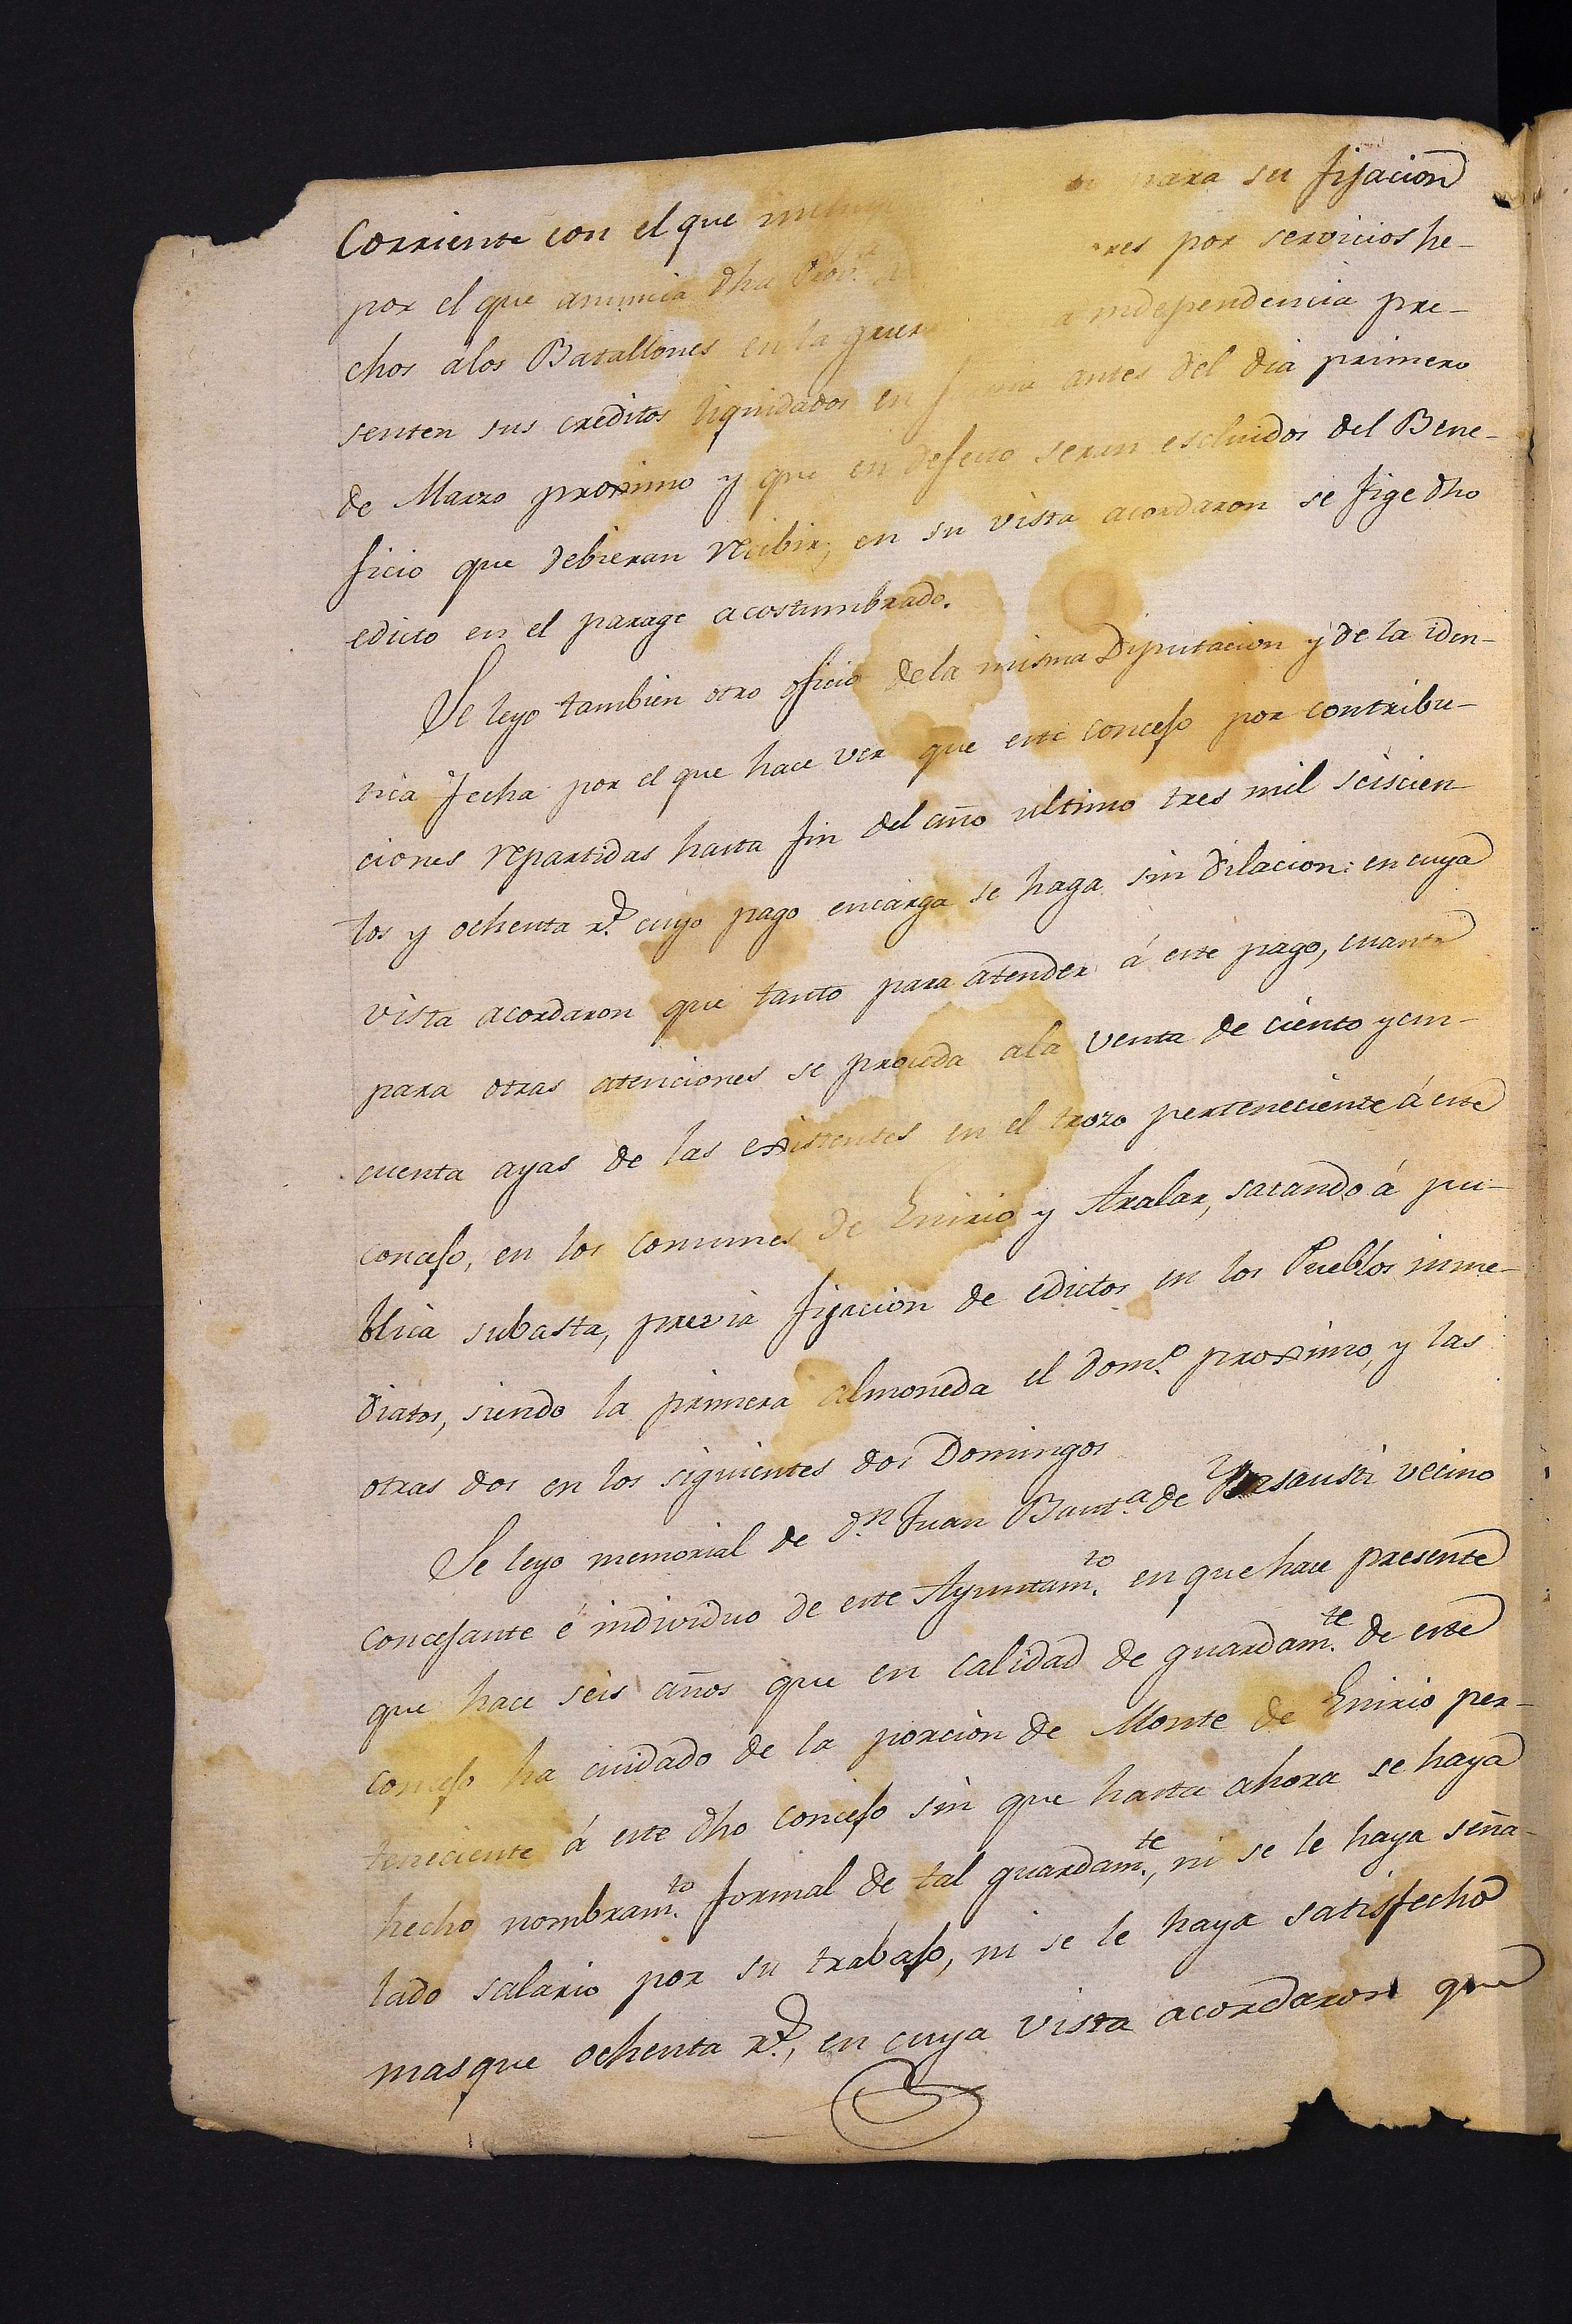 Corriente con el que para su fijacion
por el que anuncia dha por servicios he-
chos alos Batallones en la independencia pre-
senten sus creditos liquidados en antes del dia primero
de Marzo proximo y que en defecto seran escluidos del Bene-
ficio que debieran recibir; en su vista acordaron se fige dho
edicto en el parage acostumbrado.
Se leyo tambien otro oficio dela misma Diputacion y de la iden-
tica fecha por el que hace ver que este concejo por contribu-
ciones repartidas hasta fin del año ultimo tres mil seiscien-
tos y ochenta r.^s cuyo pago encarga se haga sin dilacion: en cuya
vista acordaron que tanto para atender á este pago, cuanto
para otras atenciones se proceda ala venta de ciento y cin-
cuenta ayas de las existentes en el trozo perteneciente á este
concejo, en los comunes de Enirio y Aralar, sacando á pu-
blica subasta, previa fijacion de edictos en los Pueblos inme-
diatos, siendo la primera almoneda el dom.^o proximo, y las
otras dos en los siguientes dos Domingos
Se leyo memorial de d.^n Juan Baut.^a de vecino
concejante é individuo de este Ayuntam.^to en que hace presente
que hace seis años que en calidad de guardam.^te de este
concejo ha cuidado de la porcion de Monte de Enirio per-
teneciente á este dho concejo sin que hasta ahora se haya
hecho nombram.^to formal de tal guardam.^te, ni se le haya seña-
lado salario por su trabajo, ni se le haya satisfecho
masque ochenta r.^s, en cuya vista acordaron que